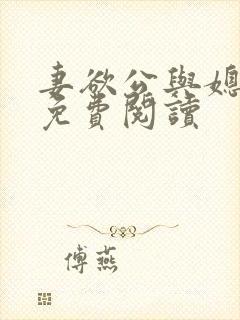 妻欲公與媳
免費閱讀
傅燕